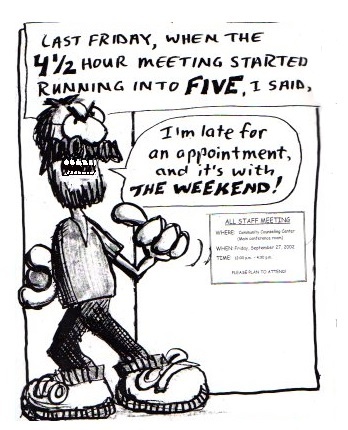 LAST FRIDAY, WHEN THE
4 1/2 HOUR MEETING STARTED
RUNNING INTO FIVE, I SAID,
I'm late for
an appointment,
and it's with
THE WEEKEND!
ALL STAFF MEETING
WHERE: Community Counseling Center
(Main conference room)
WHEN: Friday, September 27, 2002
TIME: 12:00 p.m. - 4:30 p.m.
PLEASE PLAN TO ATTEND!